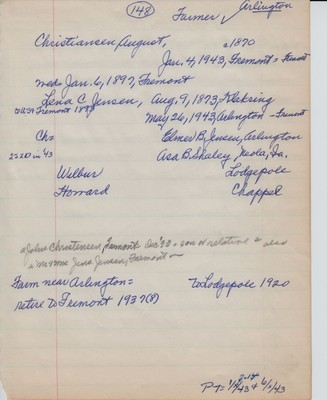 (148)
Farmer, Arlington
Christiansen, August, a 1870
Jan. 4, 1943, Fremont = Fremont
wed: Jan. 6, 1897, Fremont
Lena C. Jensen, Aug. 9, 1873,
to USA Fremont May 26, 1943, Arlington - Fremont
Chs Elmer B. Jensen, Arlington
in '43 Asa B. Shaley, Neola, Ia.
Wilbur Lodgepole
Howard Chappel
John Christensen, Fremont son or relative also
Mr & Mrs Jens Jensen, Fremont
Farm near Arlington = to Lodgepole 1920
retire to Fremont 1937(8)